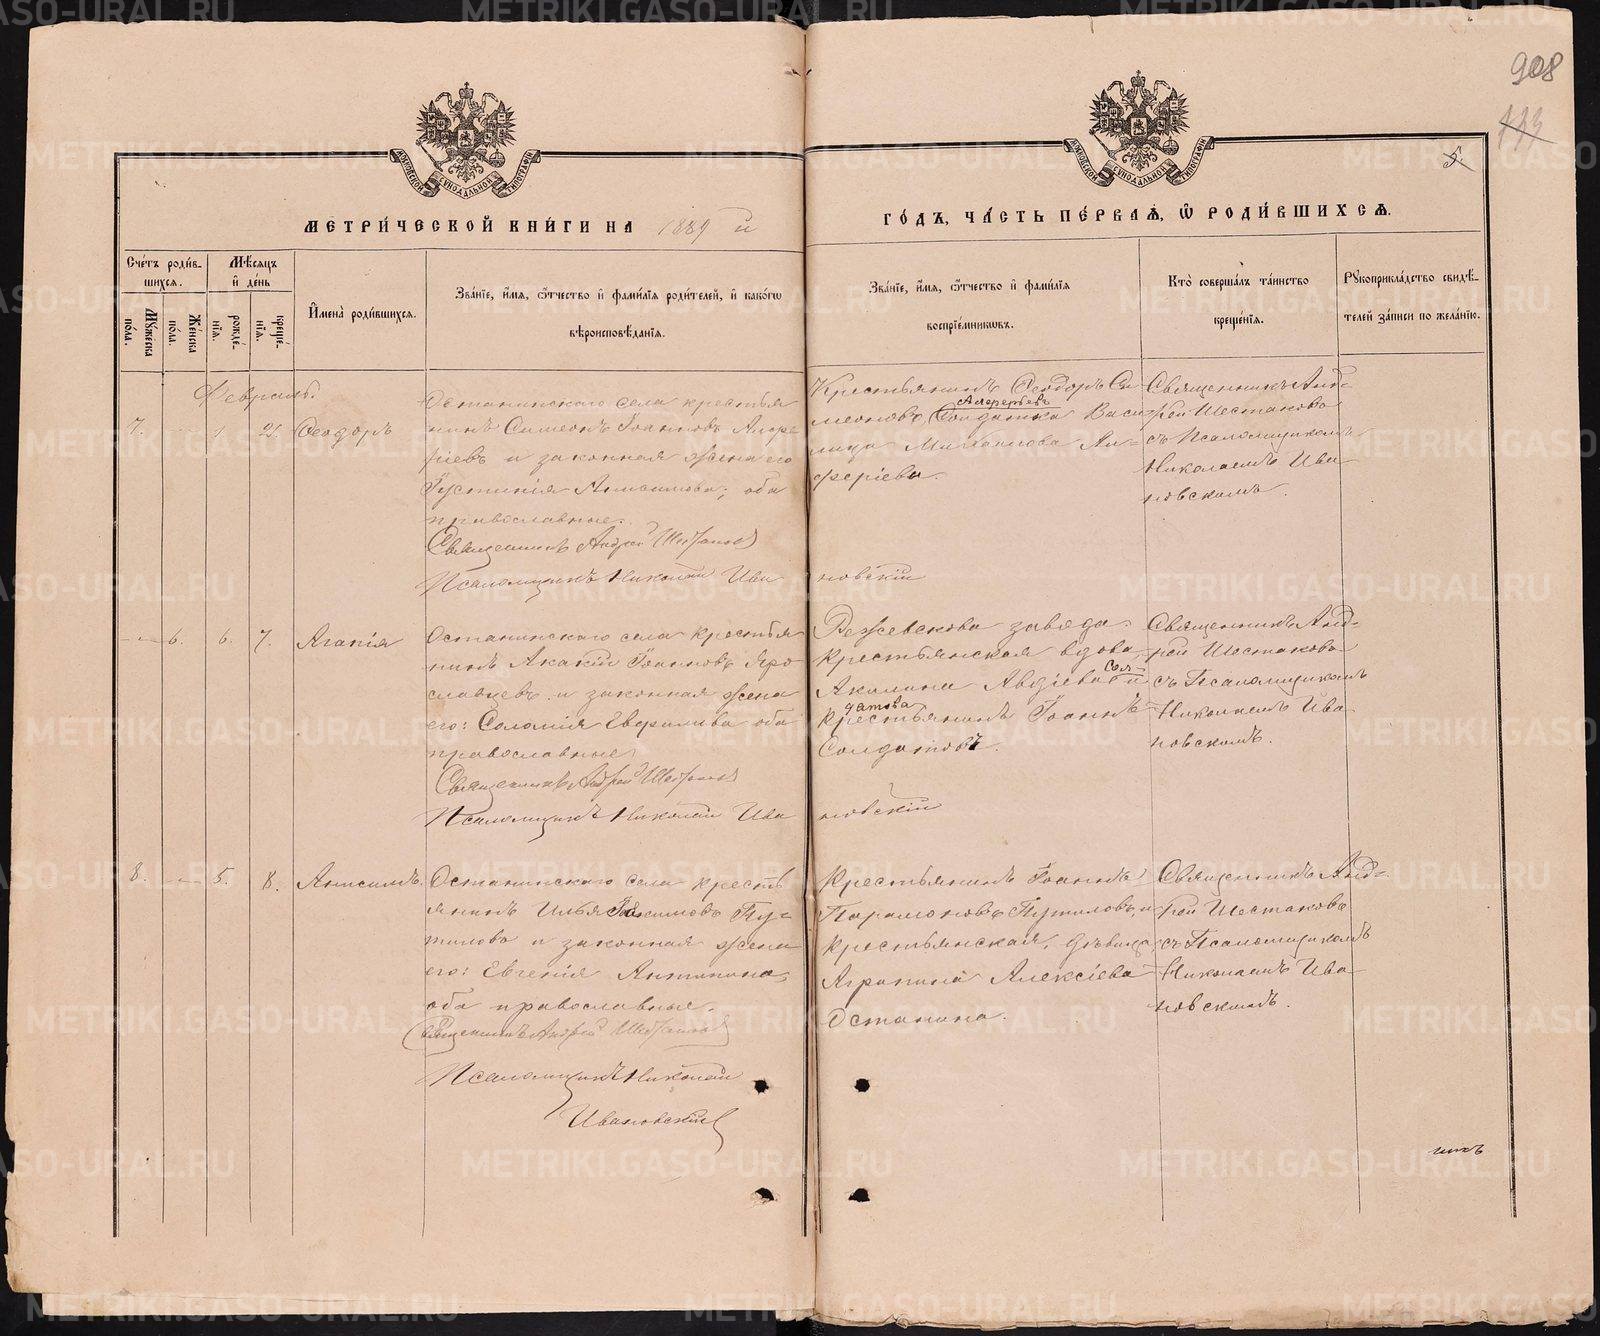 908
113
5.
МЕТРИ́ЧЕСКОЙ КНИ́ГИ НА 1889 й
ГО́ДЪ, ЧА́СТЬ ПЕ́РВАѦ, Ѽ РОДИ́ВШИХСѦ.
Сче́тъ роди́в-
шихсѧ.
Мѹ́жеска по́ла.
Же́нска по́ла.
Мѣ́сѧцъ
и҆ де́нь
рожде́-
нїѧ.
креще́-
нїѧ.
И҆мена̀ роди́вшихсѧ.
Зва́нїе, и҆́мѧ, ѻ҆́тчество и҆ фами́лїѧ роди́телей, и҆ како́гѡ
вѣроисповѣ́данїѧ.
Зва́нїе, и҆́мѧ, ѻ҆́тчество и҆ фами́лїѧ
воспрїе́мникѡвъ.
Кто̀ соверша́лъ та́инство
креще́нїѧ.
Рѹкоприкла́дство свидѣ́-
телей за́писи по жела́нїю.
Февраль.
7. 1. 2. Ѳеодоръ
Останинскаго села крестья
нинъ Симеонъ Іоанновъ Алфе
ріевъ и законная жена его
Іустинія Анисимова; оба
православные.
Священникъ Андрей Шестаковъ
Псаломщикъ Николай Ива
новскій
Крестьянинъ Ѳеодоръ Си
меоновъ Алферьевъ Солдатка Васи-
лиса Михаилова Ал-
феріева.
Священникъ Анд-
рей Шестаковъ
съ Псаломщикомъ
Николаемъ Ива
новскимъ.
6. 6. 7. Агапія
Останинскаго села крестья
нинъ Акакій Іоанновъ Яро
славцевъ и законная жена
его: Соломія Евфимиева оба
православные
Священникъ Андрей Шестаковъ
Псаломщикъ Николай Ива
новскій
Режевскова завода
крестьянская вдова
Акилина Авдіева Сол-
датова и
крестьянинъ Іоаннъ
Солдатовъ.
Священникъ Анд-
рей Шестаковъ
съ Псаломщикомъ
Николаемъ Ива
новскимъ.
8. 5. 8. Анисимъ.
Останинскаго села кресть
янинъ Илья Пу-
тиловъ и законная жена
его: Евгенія Антипина,
оба православные.
Священникъ Андрей Шестаковъ
Псаломщикъ Николай
Ивановскій
Крестьянинъ Іоаннъ
Парамоновъ Путиловъ и
крестьянская дѣвица
Агрипина Алексіева
Останина.
Священникъ Анд-
рей Шестаковъ
съ Псаломщикомъ
Николаемъ Ива
новскимъ.
никъ